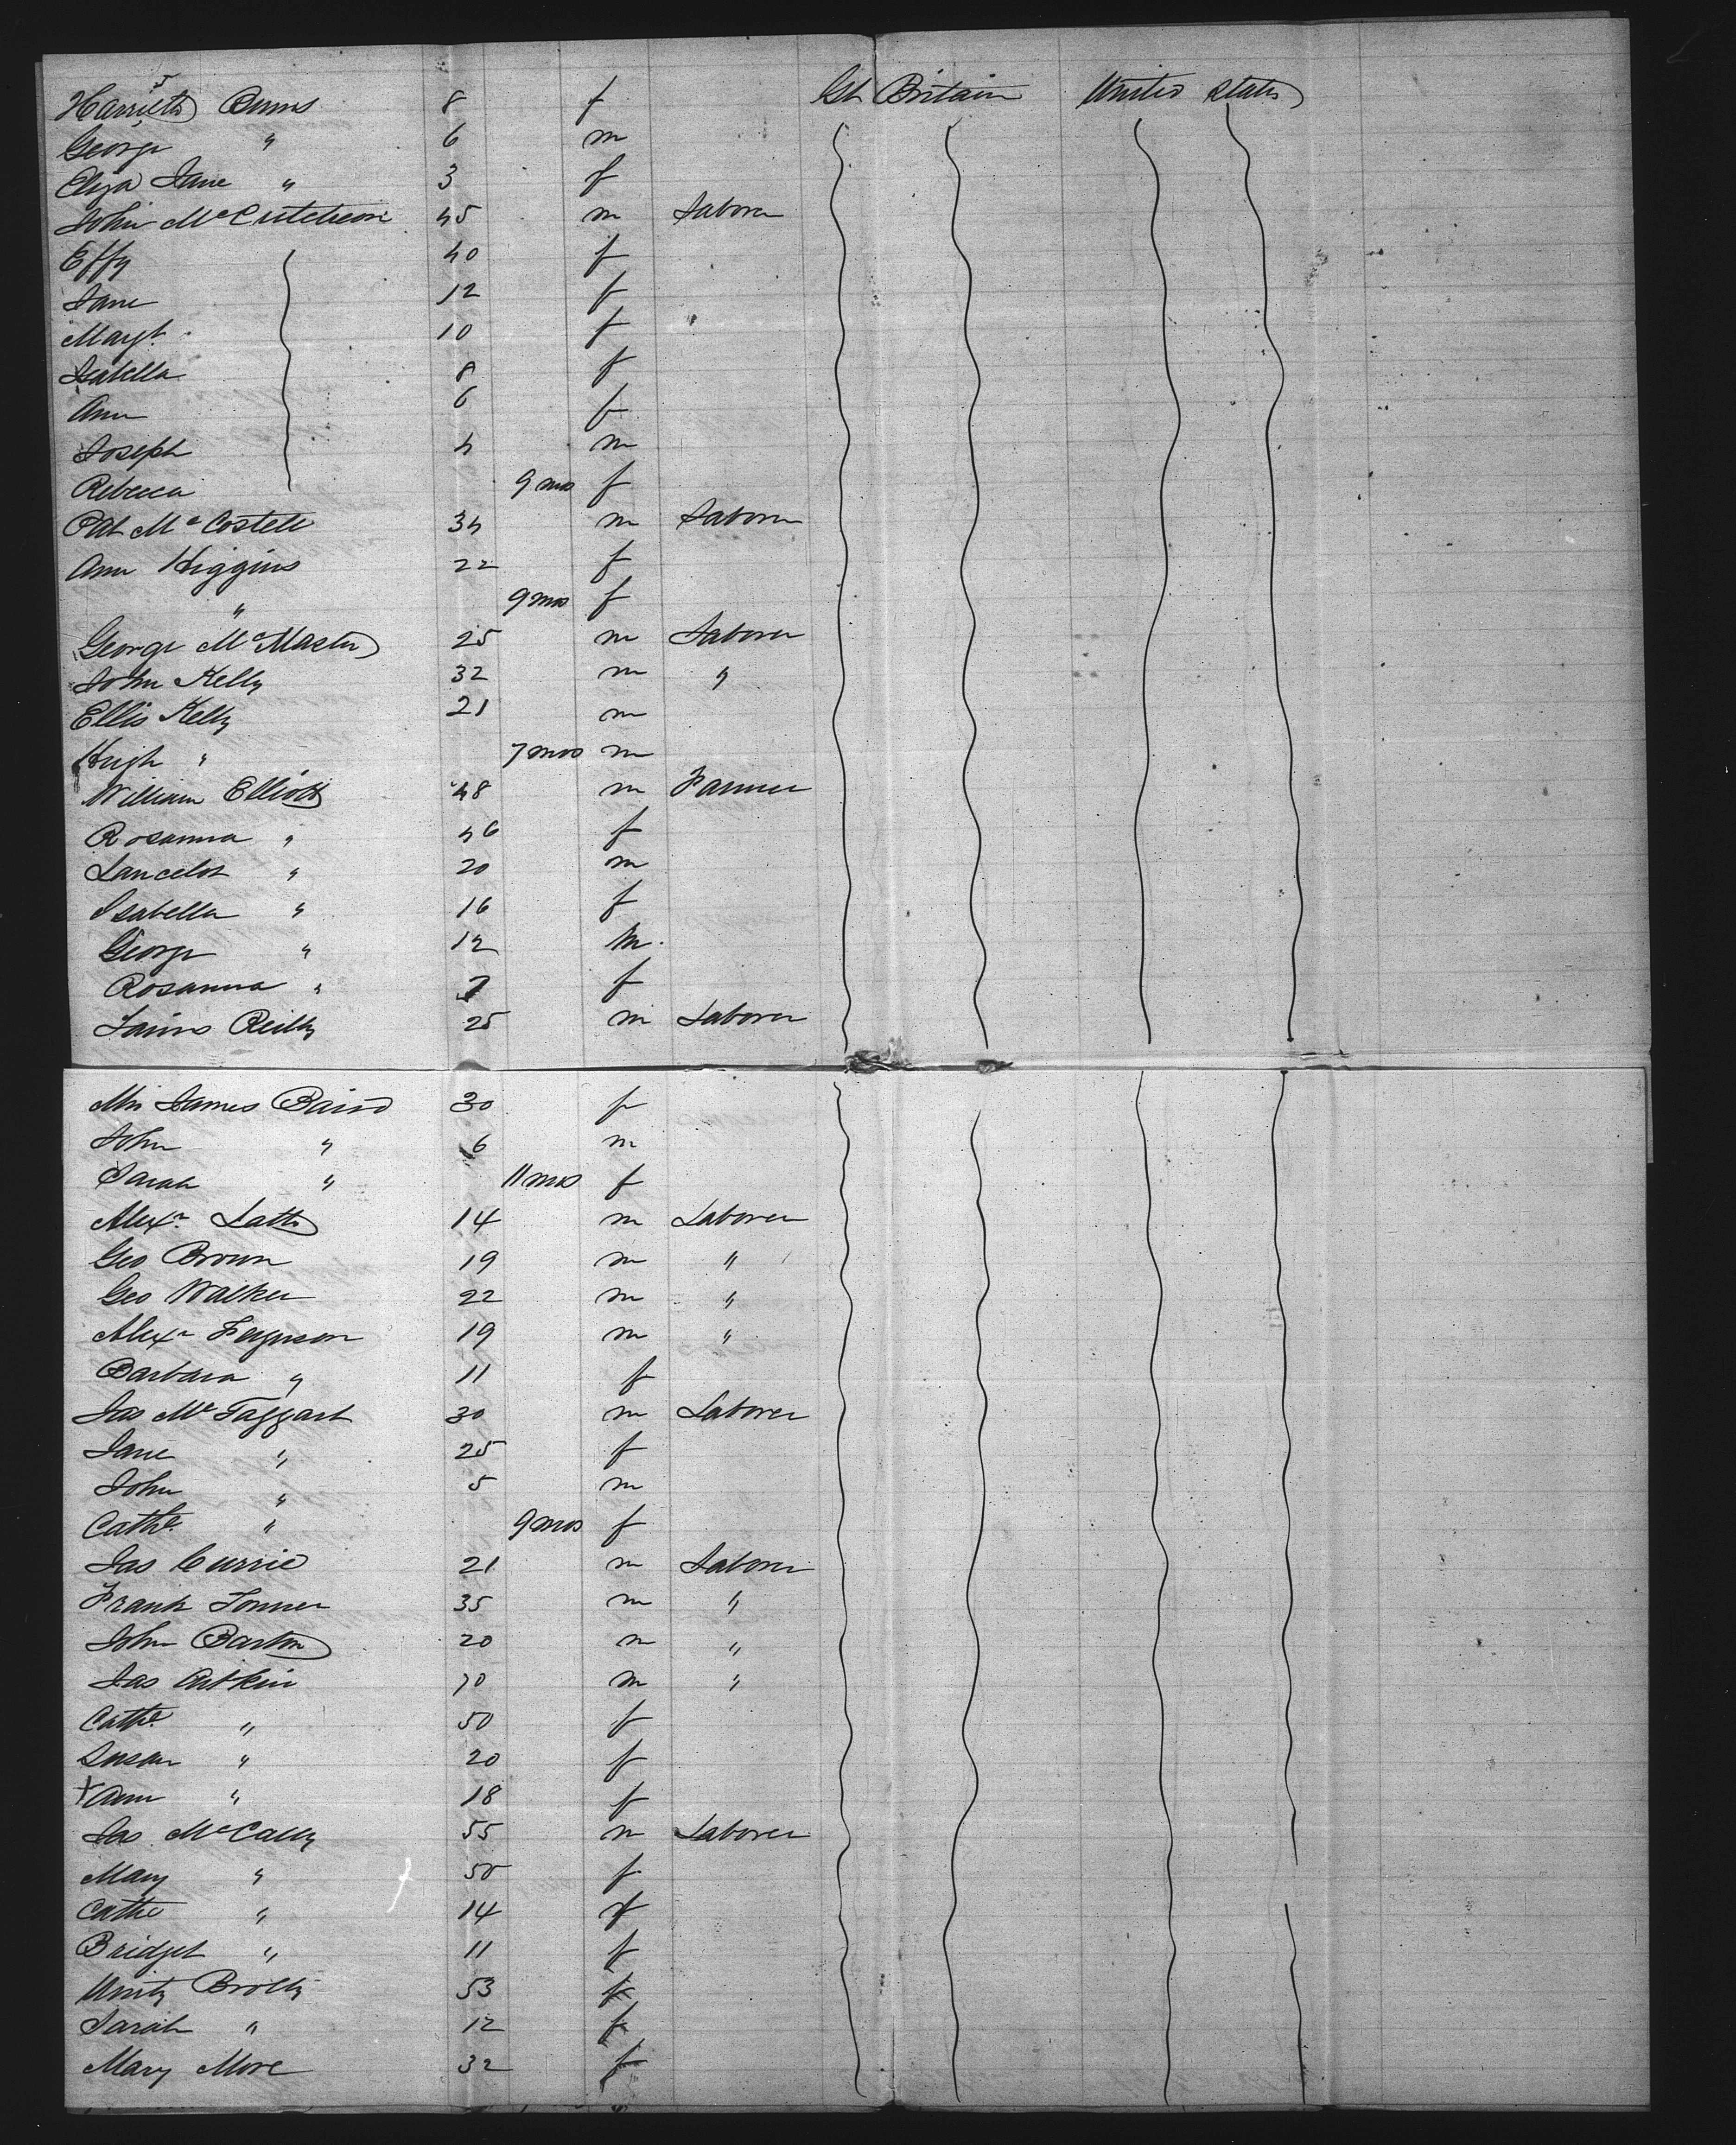 Harriett Burns 8 f Gt Britain United States
George " 6 m
Eliza Jane " 3 f
John McCutcheon 45 m Laborer
Effy 40 f
Jane 12 f
Margt. 10 f
Isabella 8 f
Ann 6 f
Joseph 4 m
Rebecca 9 mos f
Pat McCostell 34 m Laborer
Ann Higgins 22 f
" 9 mos f
George McMaster 25 m Laborer
John Kelly 32 m "
Ellis Kelly 21 m
Hugh " 7 mos m
William Elliott 48 m Farmer
Rosanna " 46 f
Lancelot " 20 m
Isabella " 16 f
George " 12 m.
Rosanna " 7 f
James Reilly 25 m Laborer
Mrs James Baird 30 f
John " 6 m
Sarah " 11 mos f
Alexr. 14 m Laborer
Geo Brown 19 m "
Geo Walker 22 m "
Alexr Ferguson 19 m "
Barbara " 11 f
Jas McTaggart 30 m Laborer
Jane " 25 f
John " 5 m
Cathe. " 9 mos f
Jas Currie 21 m Laborer
Frank Tonner 35 m "
John Barton 20 m "
Jas Aitkin m "
Cathe. " 50 f
Susan " 20 f
+ Ann " 18 f
Jas McCally 55 m Laborer
Mary " 50 f
Cathe " 14 f
Bridget " 11 f
Unity Brolly 53 f
Sarah " 12 f
Mary More 32 f